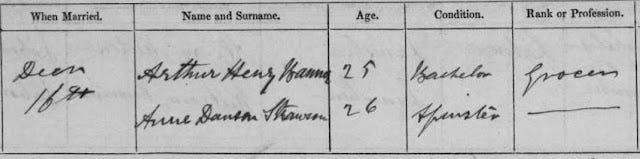 When Married. Name and Surname. Age. Condition. Rank or Profession.
Decr Arthur Henry 25 Bachelor Grocer
16th Anne Danson 26 Spinster